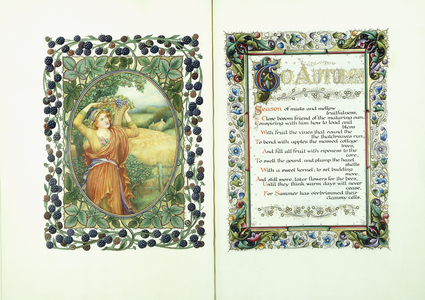 To Autumn
Season of mists and mellow
fruitfulness,
Close bosom friend of the maturing sun;
Conspiring with him how to load and
bless
With fruit the vines that round the
thatch-eaves run,
To bend with apples the moss'd cottage
trees,
And fill all fruit with ripeness to the
core,
To swell the gourd, and plump the hazel
shells
With a sweet kernel; to set budding
more,
And still more, later flowers for the bees,
Until they think warm days will never
cease,
For Summer has o'erbrimmed their
clammy cells.